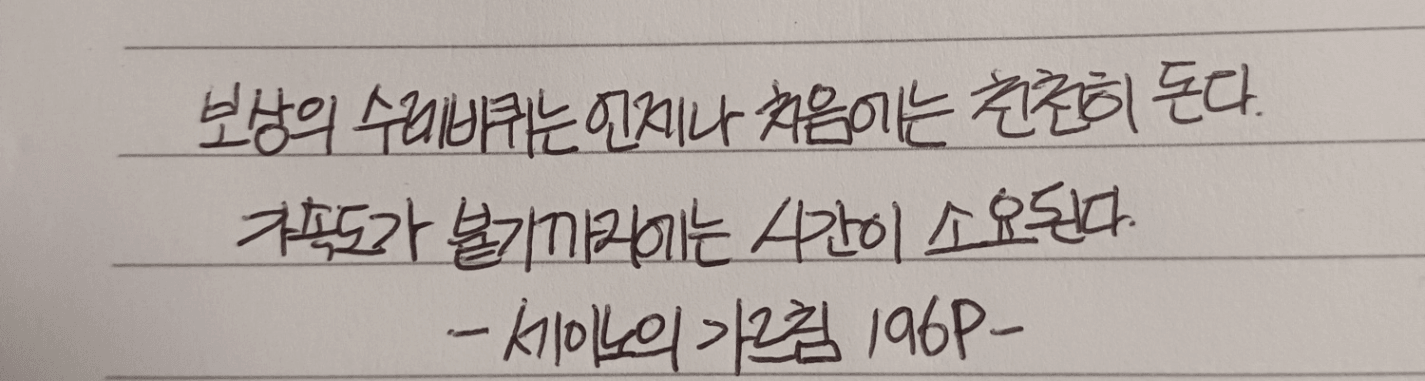 보상의 수레바퀴는 언제나 처음에는 천천히 돈다.
가속도가 붙기까지에는 시간이 소요된다.
- 세이노의 가르침 196P -